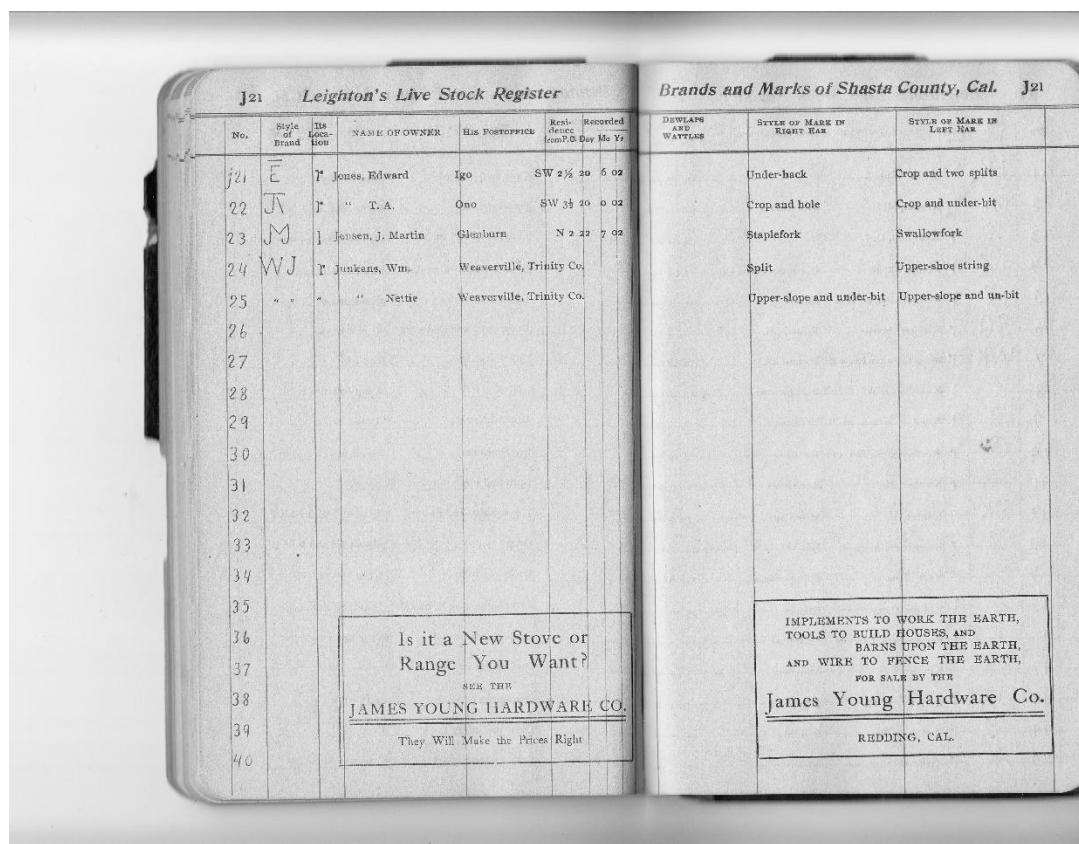 J21 Leighton's Live Stock Register
No. Style of Brand Its Location NAME OF OWNER HIS POSTOFFICE Residence from P.O. Recorded Day Mo Yr
j21 E r Jones, Edward Igo SW 2½ 20 6 02
22 JA r " T. A. Ono SW 3½ 20 0 02
23 JM l Jensen, J. Martin Glenburn N 2 22 7 02
24 WJ r Junkans, Wm. Weaverville, Trinity Co.
25 " " " " Nettie Weaverville, Trinity Co.
26
27
28
29
30
31
32
33
34
35
36
37
38
39
40
Is it a New Stove or
Range You Want?
SEE THE
JAMES YOUNG HARDWARE CO.
They Will Make the Prices Right
Brands and Marks of Shasta County, Cal. J21
DEWLAPS AND WATTLES STYLE OF MARK IN RIGHT EAR STYLE OF MARK IN LEFT EAR
Under-back Crop and two splits
Crop and hole Crop and under-bit
Staplefork Swallowfork
Split Upper-shoe string
Upper-slope and under-bit Upper-slope and un-bit
IMPLEMENTS TO WORK THE EARTH,
TOOLS TO BUILD HOUSES, AND
BARNS UPON THE EARTH,
AND WIRE TO FENCE THE EARTH,
FOR SALE BY THE
James Young Hardware Co.
REDDING, CAL.